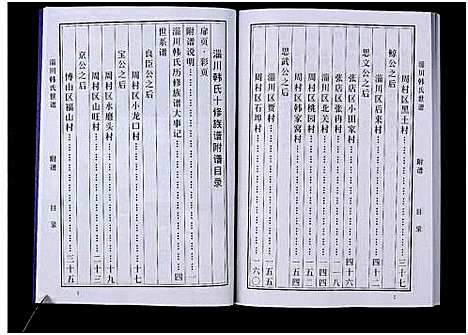 淄川韩氏十修族谱附谱目录
扉页·彩页
附谱说明……………一
淄川韩氏历修族谱大事记……四
世系谱
良臣公之后
周村区小龙口村……十七
宝公之后
周村区水磨头村……十九
周村区山旺村……二十三
京公之后
博山区福山村……三十五
淄川韩氏世谱 附谱 目录
淄川韩氏世谱 附谱 目录
鲸公之后
周村区黑土村……三十七
思文公之后
淄川区后来村……四十二
张店区小田家村……四十六
张店区张冉村……一一八
淄川区北关村
周村区桃园村……一四二
思武公之后
周村区韩家窝村
淄川区贾村……一五五
周村区石埠村……一六〇